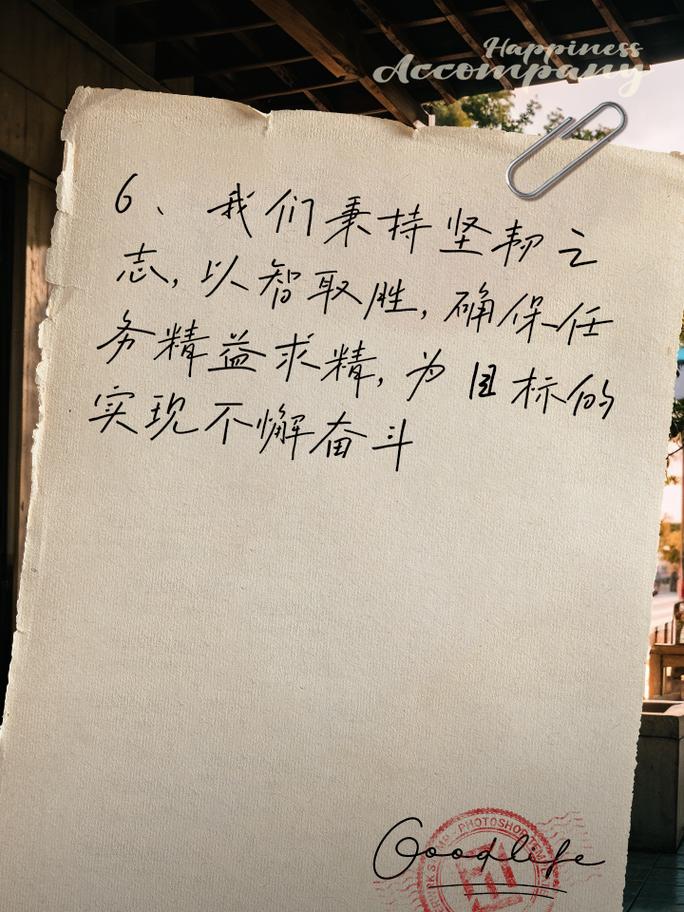 Happiness
Accompany
6、我们秉持坚韧之
志,以智取胜,确保任
务精益求精,为目标的
实现不懈奋斗
PHOTOSHOP
Goodlife